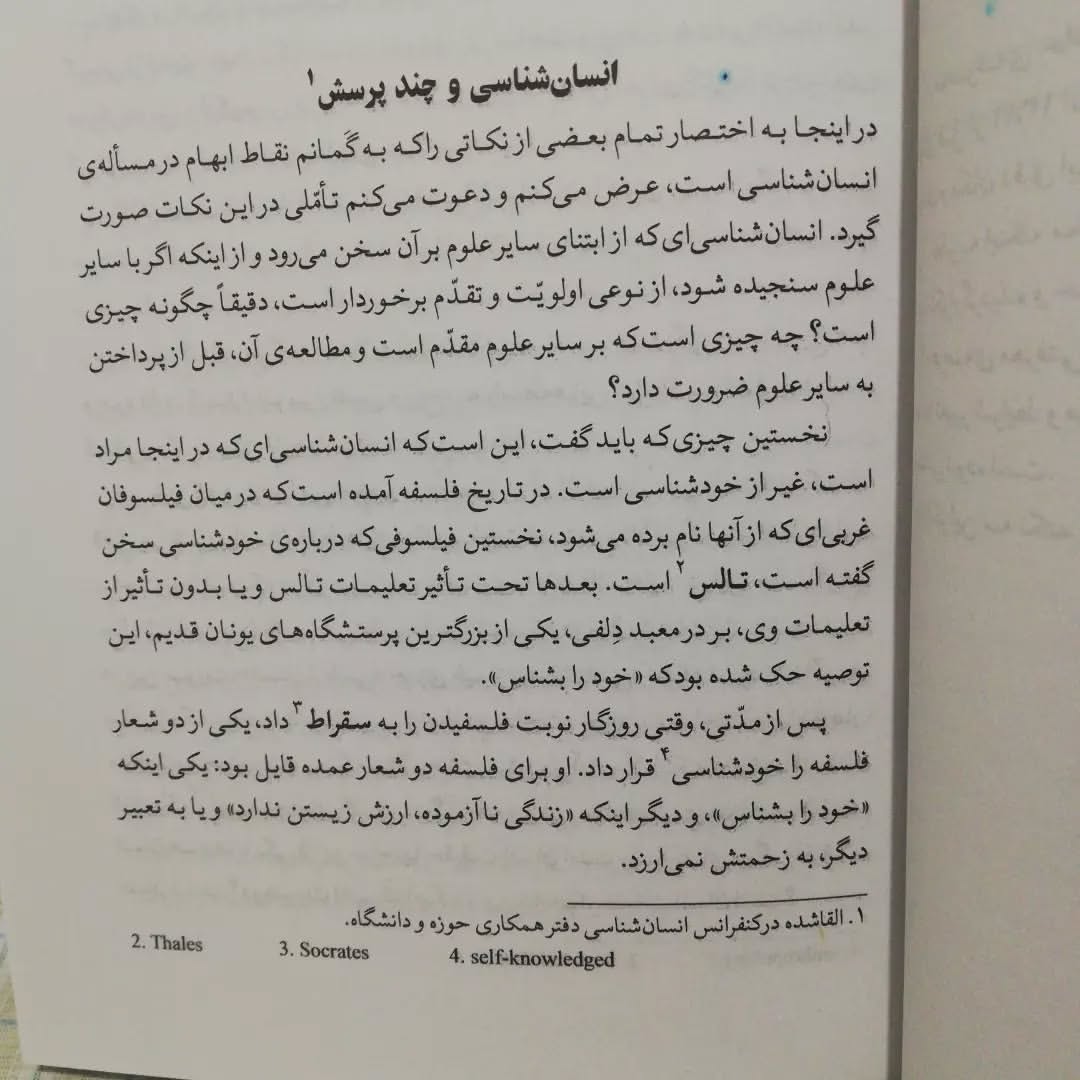 انسان‌شناسی و چند پرسش۱
در اینجا به اختصار تمام بعضی از نکاتی را که به گَمانم نقاط ابهام در مسأله‌ی
انسان‌شناسی است، عرض می‌کنم و دعوت می‌کنم تأمّلی در این نکات صورت
گیرد. انسان‌شناسی‌ای که از ابتنای سایر علوم بر آن سخن می‌رود و از اینکه اگر با سایر
علوم سنجیده شود، از نوعی اولویّت و تقدّم برخوردار است، دقیقاً چگونه چیزی
است؟ چه چیزی است که بر سایر علوم مقدّم است و مطالعه‌ی آن، قبل از پرداختن
به سایر علوم ضرورت دارد؟
نخستین چیزی که باید گفت، این است که انسان‌شناسی‌ای که در اینجا مراد
است، غیر از خودشناسی است. در تاریخ فلسفه آمده است که در میان فیلسوفان
غربی‌ای که از آنها نام برده می‌شود، نخستین فیلسوفی که درباره‌ی خودشناسی سخن
گفته است، تالس۲ است. بعدها تحت تأثیر تعلیمات تالس و یا بدون تأثیر از
تعلیمات وی، بر در معبد دِلفی، یکی از بزرگترین پرستشگاه‌های یونان قدیم، این
توصیه حک شده بود که «خود را بشناس».
پس از مدّتی، وقتی روزگار نوبت فلسفیدن را به سقراط۳ داد، یکی از دو شعار
فلسفه را خودشناسی۴ قرار داد. او برای فلسفه دو شعار عمده قایل بود: یکی اینکه
«خود را بشناس»، و دیگر اینکه «زندگی ناآزموده، ارزش زیستن ندارد» و یا به تعبیر
دیگر، به زحمتش نمی‌ارزد.
۱. القاشده در کنفرانس انسان‌شناسی دفتر همکاری حوزه و دانشگاه.
2. Thales 3. Socrates 4. self-knowledged